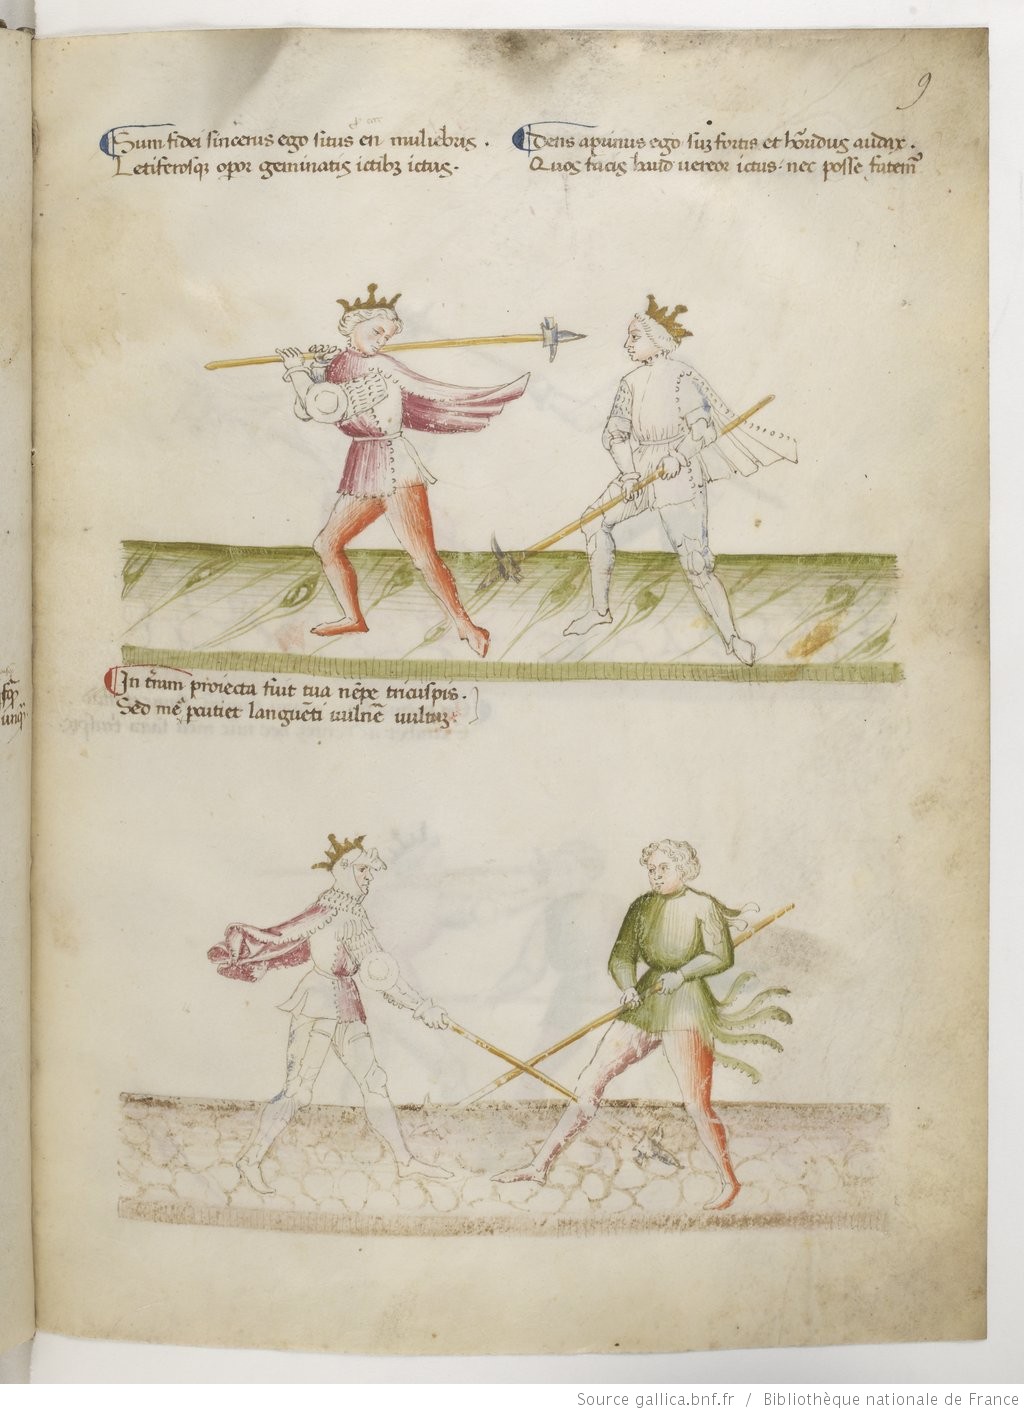 9
Sum fidei sincerus ego situs en muliebris .
Letiferosq opor geminatis ictibz ictus .
Dens aprinus ego suz fortis et horidus audax .
Quos facis haud vereor ictus . nec posse fatem
In terram proiecta fuit tua nepe tricuspis .
Sed me pcutiet languenti vulnere vultus
Source gallica.bnf.fr / Bibliothèque nationale de France